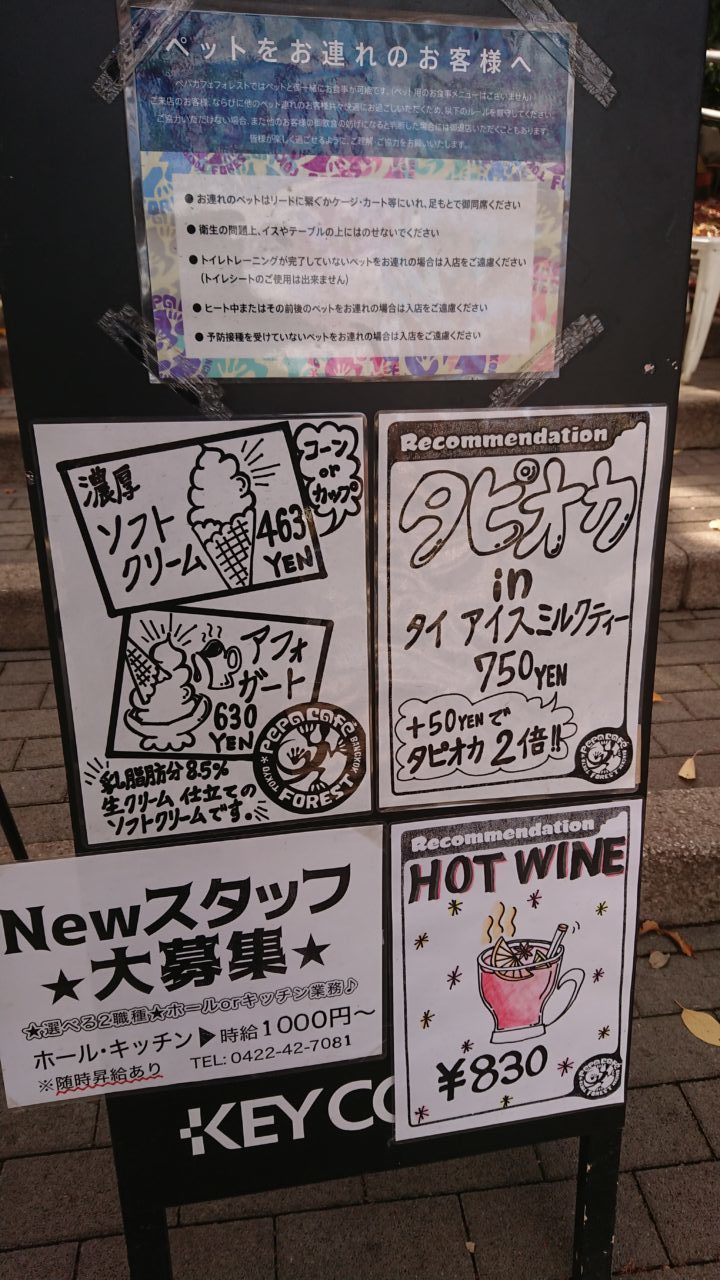 ペットをお連れのお客様へ
ペパカフェフォレストではペットと御一緒にお食事が可能です。(ペット用のお食事メニューはございません)
ご来店のお客様、ならびに他のペット連れのお客様共々快適にお過ごしいただくため、以下のルールを御守りしてください。
ご協力いただけない場合、また他のお客様の御飲食の妨げになると判断した場合には御退店いただくこともあります。
皆様が楽しく過ごせるように、ご理解・ご協力をお願いいたします。
● お連れのペットはリードに繋ぐかケージ・カート等にいれ、足もとで御同席ください
● 衛生の問題上、イスやテーブルの上にはのせないでください
● トイレトレーニングが完了していないペットをお連れの場合は入店をご遠慮ください
(トイレシートのご使用は出来ません)
● ヒート中またはその前後のペットをお連れの場合は入店をご遠慮ください
● 予防接種を受けていないペットをお連れの場合は入店をご遠慮ください
濃厚
ソフト
クリーム
463
YEN
コーン
or
カップ
アフォ
ガート
630
YEN
乳脂肪分8.5%
生クリーム仕立ての
ソフトクリームです。
PEPA CAFÉ
FOREST
TOKYO
BANGKOK
Recommendation
タピオカ
in
タイ アイスミルクティー
750YEN
+50YENで
タピオカ 2倍!!
PEPA CAFÉ
FOREST
Newスタッフ
★大募集★
☆選べる2職種★ホールorキッチン業務♪
ホール・キッチン▶時給1000円～
※随時昇給あり TEL: 0422-42-7081
Recommendation
HOT WINE
¥830
PEPA CAFÉ
FOREST
KEY CO